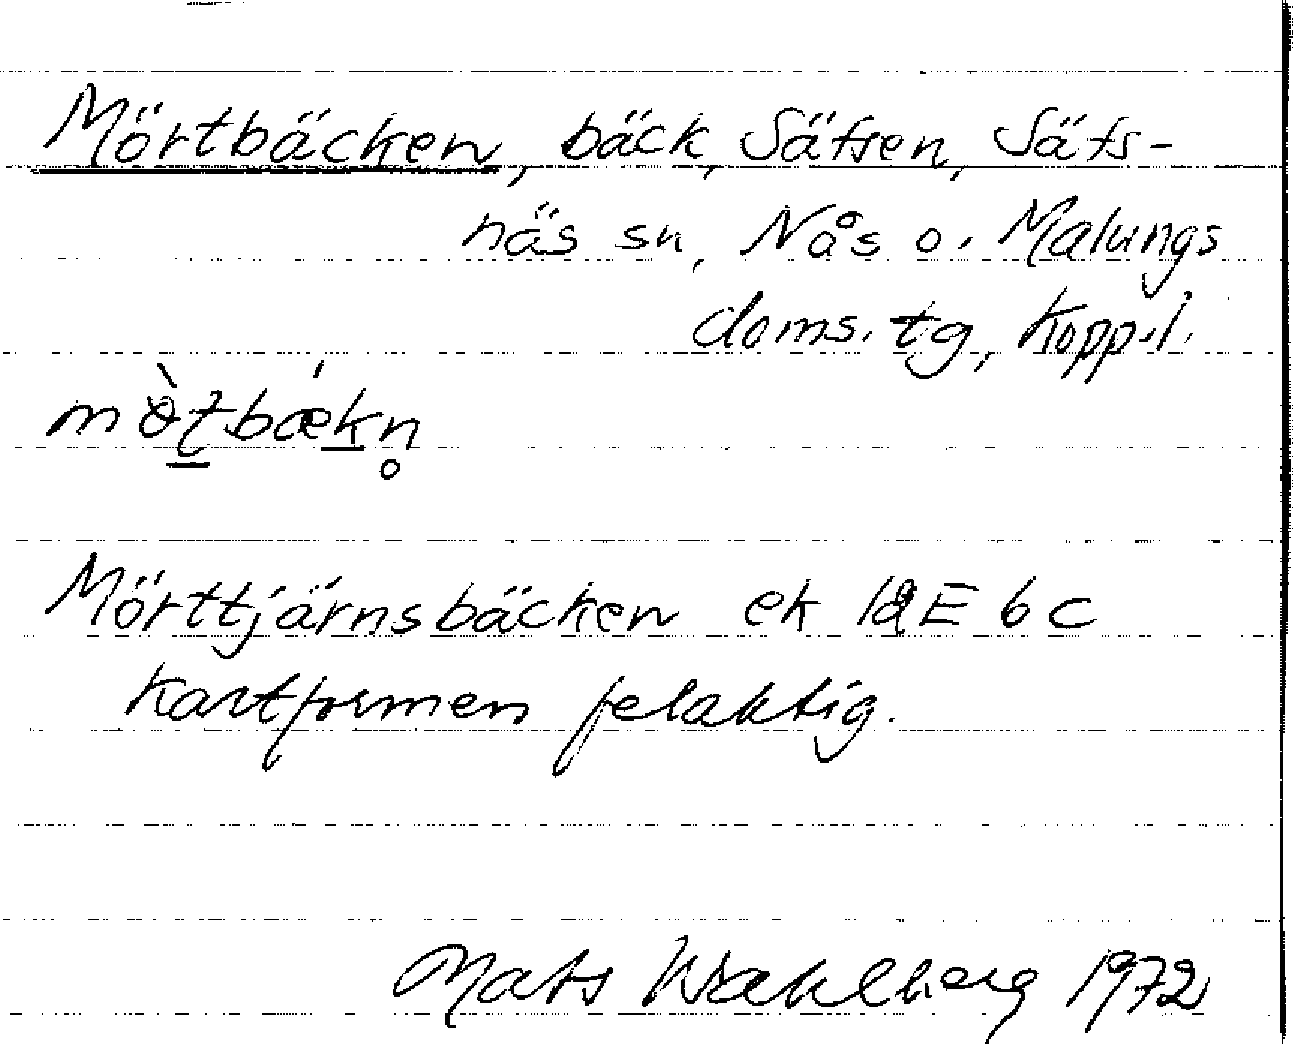 Mörtbäcken, bäck, Säfsen, Säfs-
näs sn, Nås o. Malungs
doms. tg, Kopp.l.
Mörttjärnsbäcken ek 12E 6c
Kartformen felaktig.
Mats Wahlberg 1972